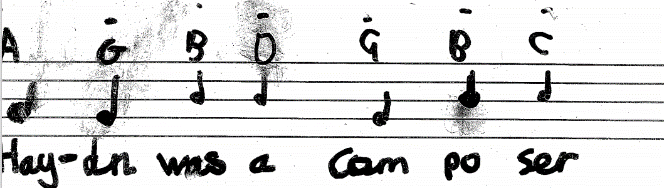 A G B D G B C
Hay-dn was a Com po ser